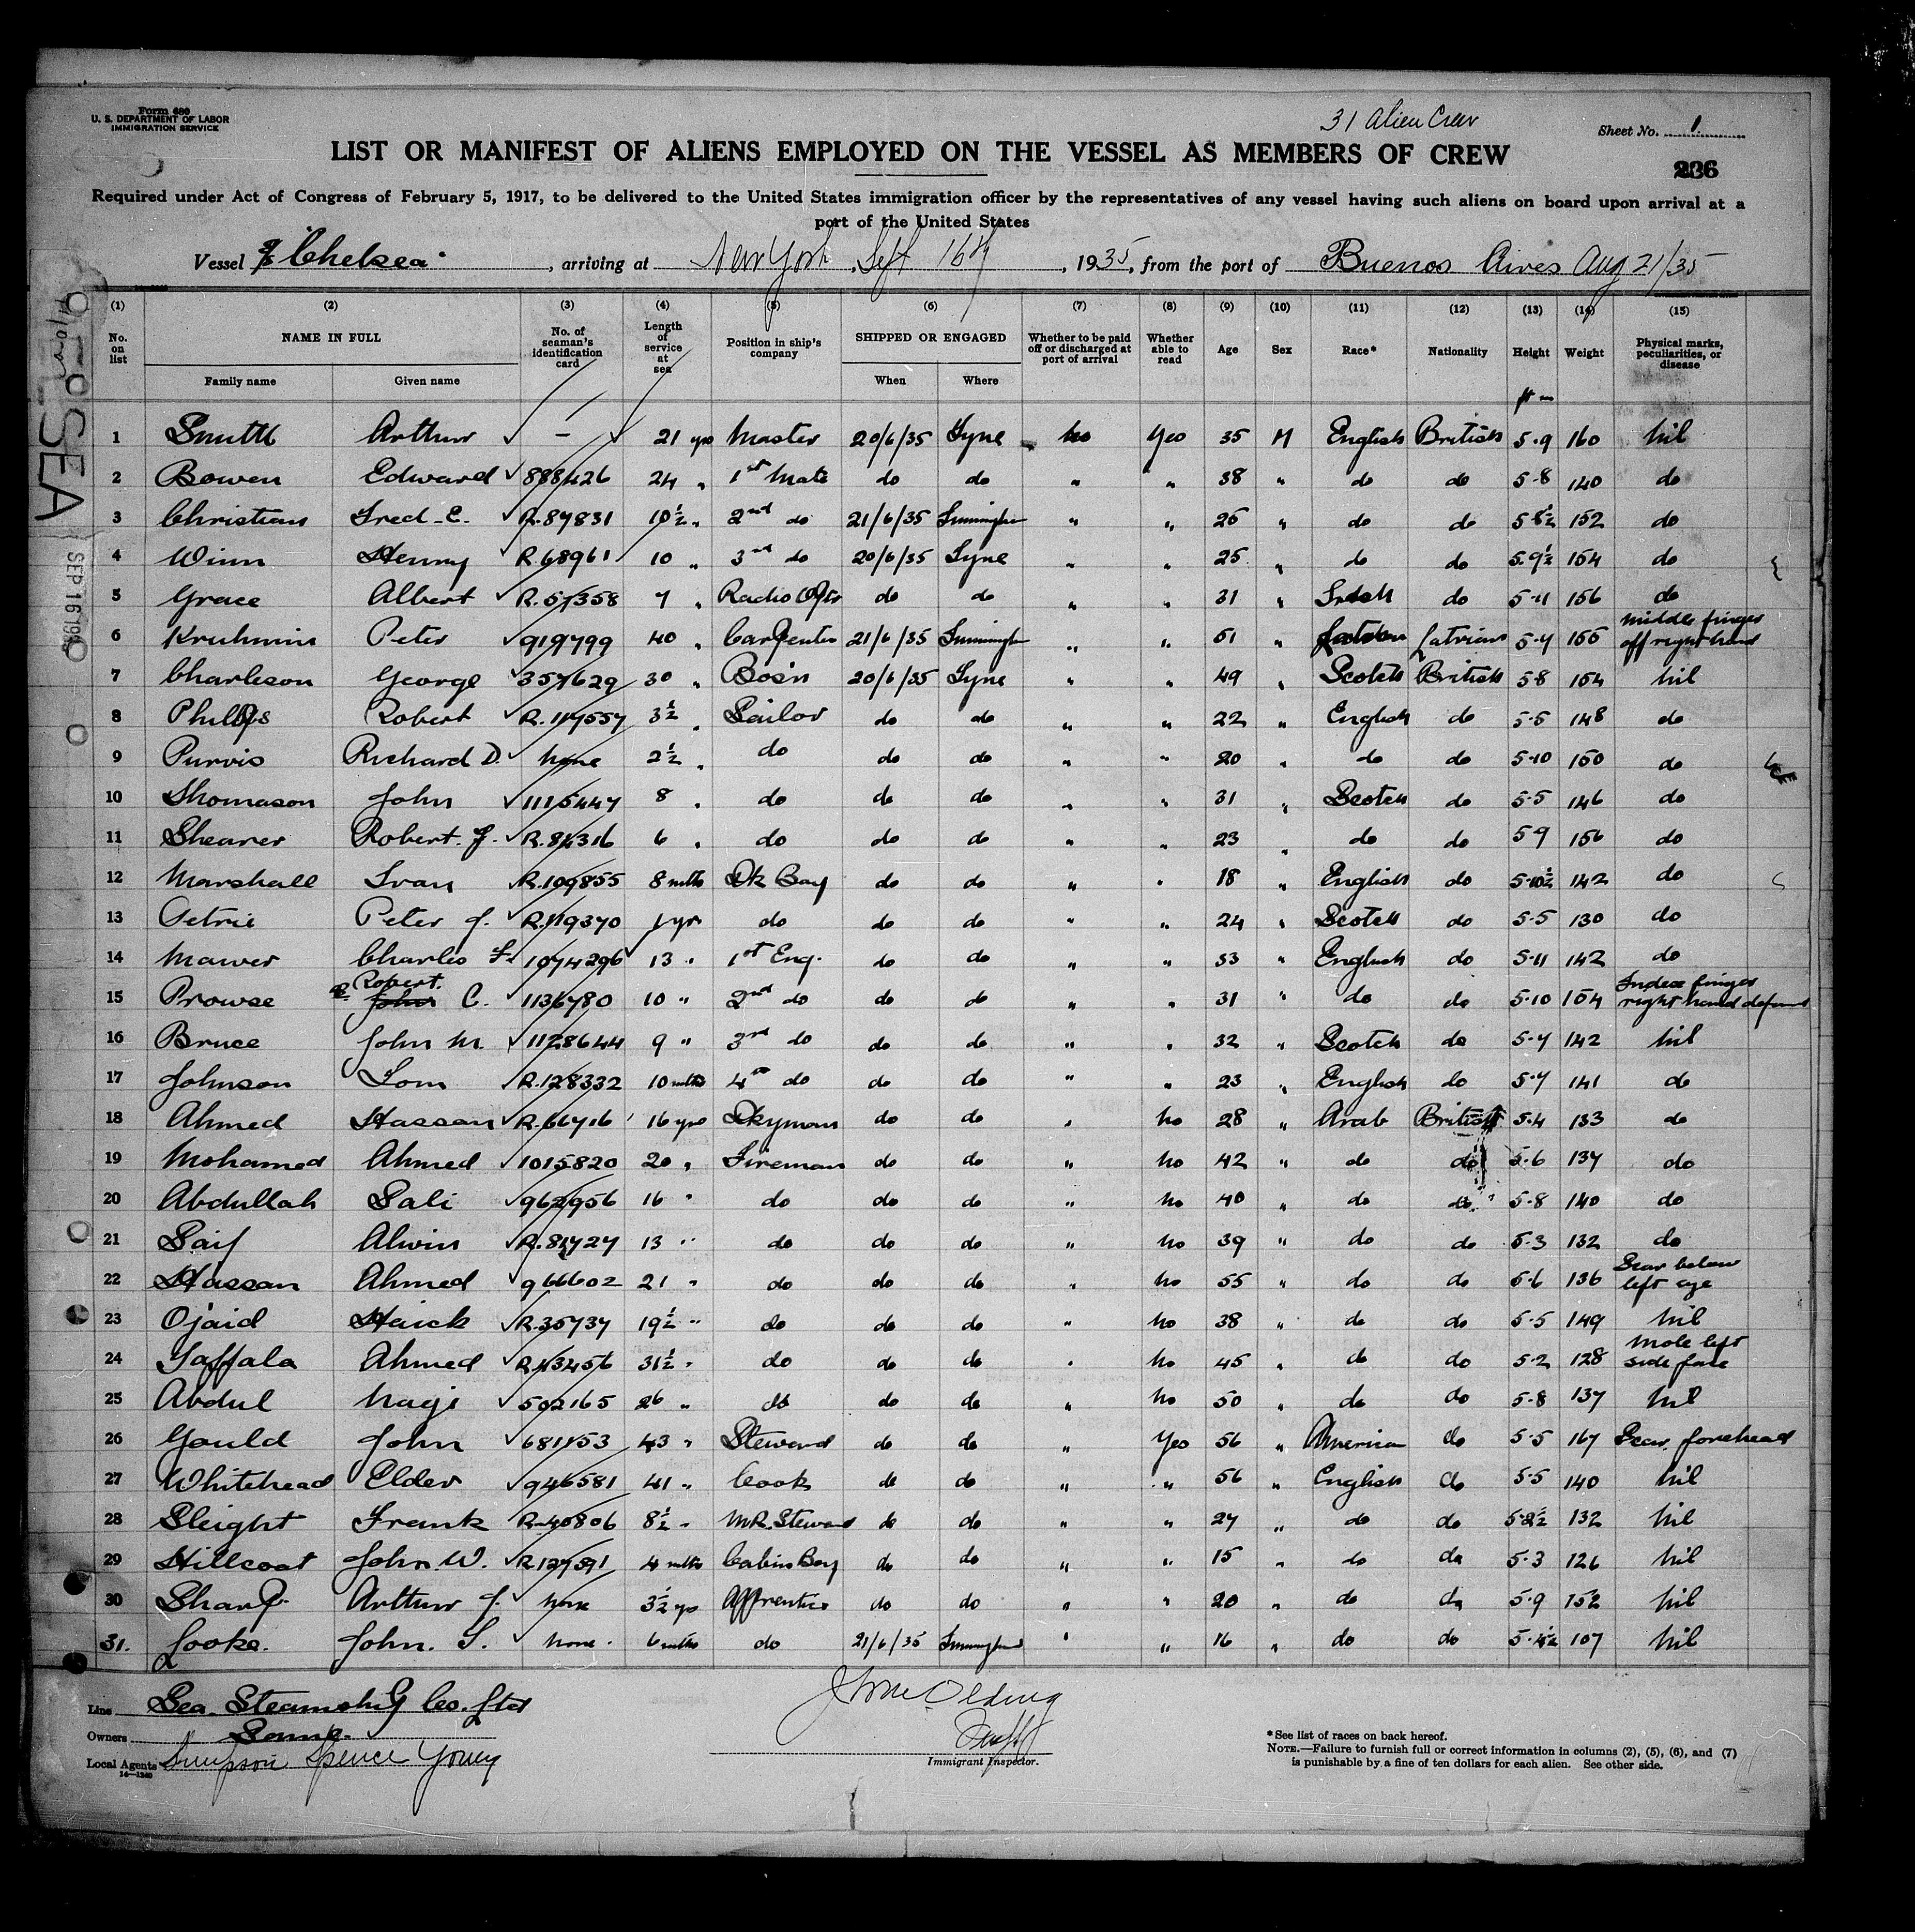 Form 680
U. S. DEPARTMENT OF LABOR
IMMIGRATION SERVICE
31 Alien Crew
Sheet No. 1
236
LIST OR MANIFEST OF ALIENS EMPLOYED ON THE VESSEL AS MEMBERS OF CREW
Required under Act of Congress of February 5, 1917, to be delivered to the United States immigration officer by the representatives of any vessel having such aliens on board upon arrival at a
port of the United States
Vessel "Chelsea", arriving at New York, Sept 16th, 1935, from the port of Buenos Aires Aug 21/35
SEA
SEP 16 19
(1) (2) (3) (4) (5) (6) (7) (8) (9) (10) (11) (12) (13) (14) (15)
No. on list NAME IN FULL No. of seaman's identification card Length of service at sea Position in ship's company SHIPPED OR ENGAGED Whether to be paid off or discharged at port of arrival Whether able to read Age Sex Race* Nationality Height Weight Physical marks, peculiarities, or disease
Family name Given name When Where
1 Smith Arthur – 21 yrs Master 20/6/35 Tyne No Yes 35 M English British 5-9 160 Nil
2 Bowen Edward 888426 24 " 1st Mate do do " " 38 " do do 5-8 140 do
3 Christian Fred. E. R.87831 10½ " 2nd do 21/6/35 Immingham " " 26 " do do 5-8½ 152 do
4 Winn Henry R.68961 10 " 3rd do 20/6/35 Tyne " " 25 " do do 5-9½ 154 do
5 Grace Albert R.57358 7 " Radio Optr do do " " 31 " Irish do 5-11 156 do
6 Kruhmin Peter 919799 40 " Carpenter 21/6/35 Immingham " " 51 " Latvian Latvian 5-7 155 middle finger off right hand
7 Charleson George 357629 30 " Bos'n 20/6/35 Tyne " " 49 " Scotch British 5-8 154 Nil
8 Phillips Robert R.117557 3½ " Sailor do do " " 22 " English do 5-5 148 do
9 Purvis Richard D. None 2½ " do do do " " 20 " do do 5-10 150 do
10 Thomason John 1115447 8 " do do do " " 31 " Scotch do 5-5 146 do
11 Shearer Robert. J. R.84316 6 " do do do " " 23 " do do 5-9 156 do
12 Marshall Ivan R.109855 8 mths Dk Boy do do " " 18 " English do 5-10½ 142 do
13 Petrie Peter J. R.119370 1 yr do do do " " 24 " Scotch do 5-5 130 do
14 Mawer Charles F. 1074296 13 " 1st Eng. do do " " 33 " English do 5-11 142 do
15 Prowse Robert. John C. 1136780 10 " 2nd do do do " " 31 " do do 5-10 154 Index finger right hand deformed
16 Bruce John M. 1128644 9 " 3rd do do do " " 32 " Scotch do 5-7 142 Nil
17 Johnson Tom R.128332 10 mths 4th do do do " " 23 " English do 5-7 141 do
18 Ahmed Hassan R.66716 16 yrs Dkyman do do " No 28 " Arab British 5-4 133 do
19 Mohamed Ahmed 1015820 20 " Fireman do do " No 42 " do do 5-6 137 do
20 Abdullah Sali 962956 16 " do do do " No 40 " do do 5-8 140 do
21 Saif Alwin R.81727 13 " do do do " No 39 " do do 5-3 132 do
22 Hassan Ahmed 966602 21 " do do do " No 55 " do do 5-6 136 Scar below left eye
23 Ojaid Haick R.35737 19½ " do do do " No 38 " do do 5-5 149 Nil
24 Jaffala Ahmed R.113456 31½ " do do do " No 45 " do do 5-2 128 mole left side face
25 Abdul Nagi 502165 26 " do do do " No 50 " do do 5-8 137 Nil
26 Gould John 681153 43 " Steward do do " Yes 56 " American do 5-5 167 Scar, forehead
27 Whitehead Elder 946581 41 " Cook do do " " 56 " English do 5-5 140 Nil
28 Sleight Frank R.40806 8½ " M.R. Steward do do " " 27 " do do 5-2½ 132 Nil
29 Hillcoat John. W. R.127591 4 mths Cabin Boy do do " " 15 " do do 5-3 126 Nil
30 Sharp Arthur J. None 3½ yrs Apprentice do do " " 20 " do do 5-9 152 Nil
31. Cooke. John. S. None. 6 mths do 21/6/35 Immingham " " 16 " do do 5-4½ 107 Nil
Line Sea Steamship Co. Ltd
Owners Same.
Local Agents Simpson Spence Young
16—1240
Immigrant Inspector.
*See list of races on back hereof.
NOTE.—Failure to furnish full or correct information in columns (2), (5), (6), and (7)
is punishable by a fine of ten dollars for each alien. See other side.